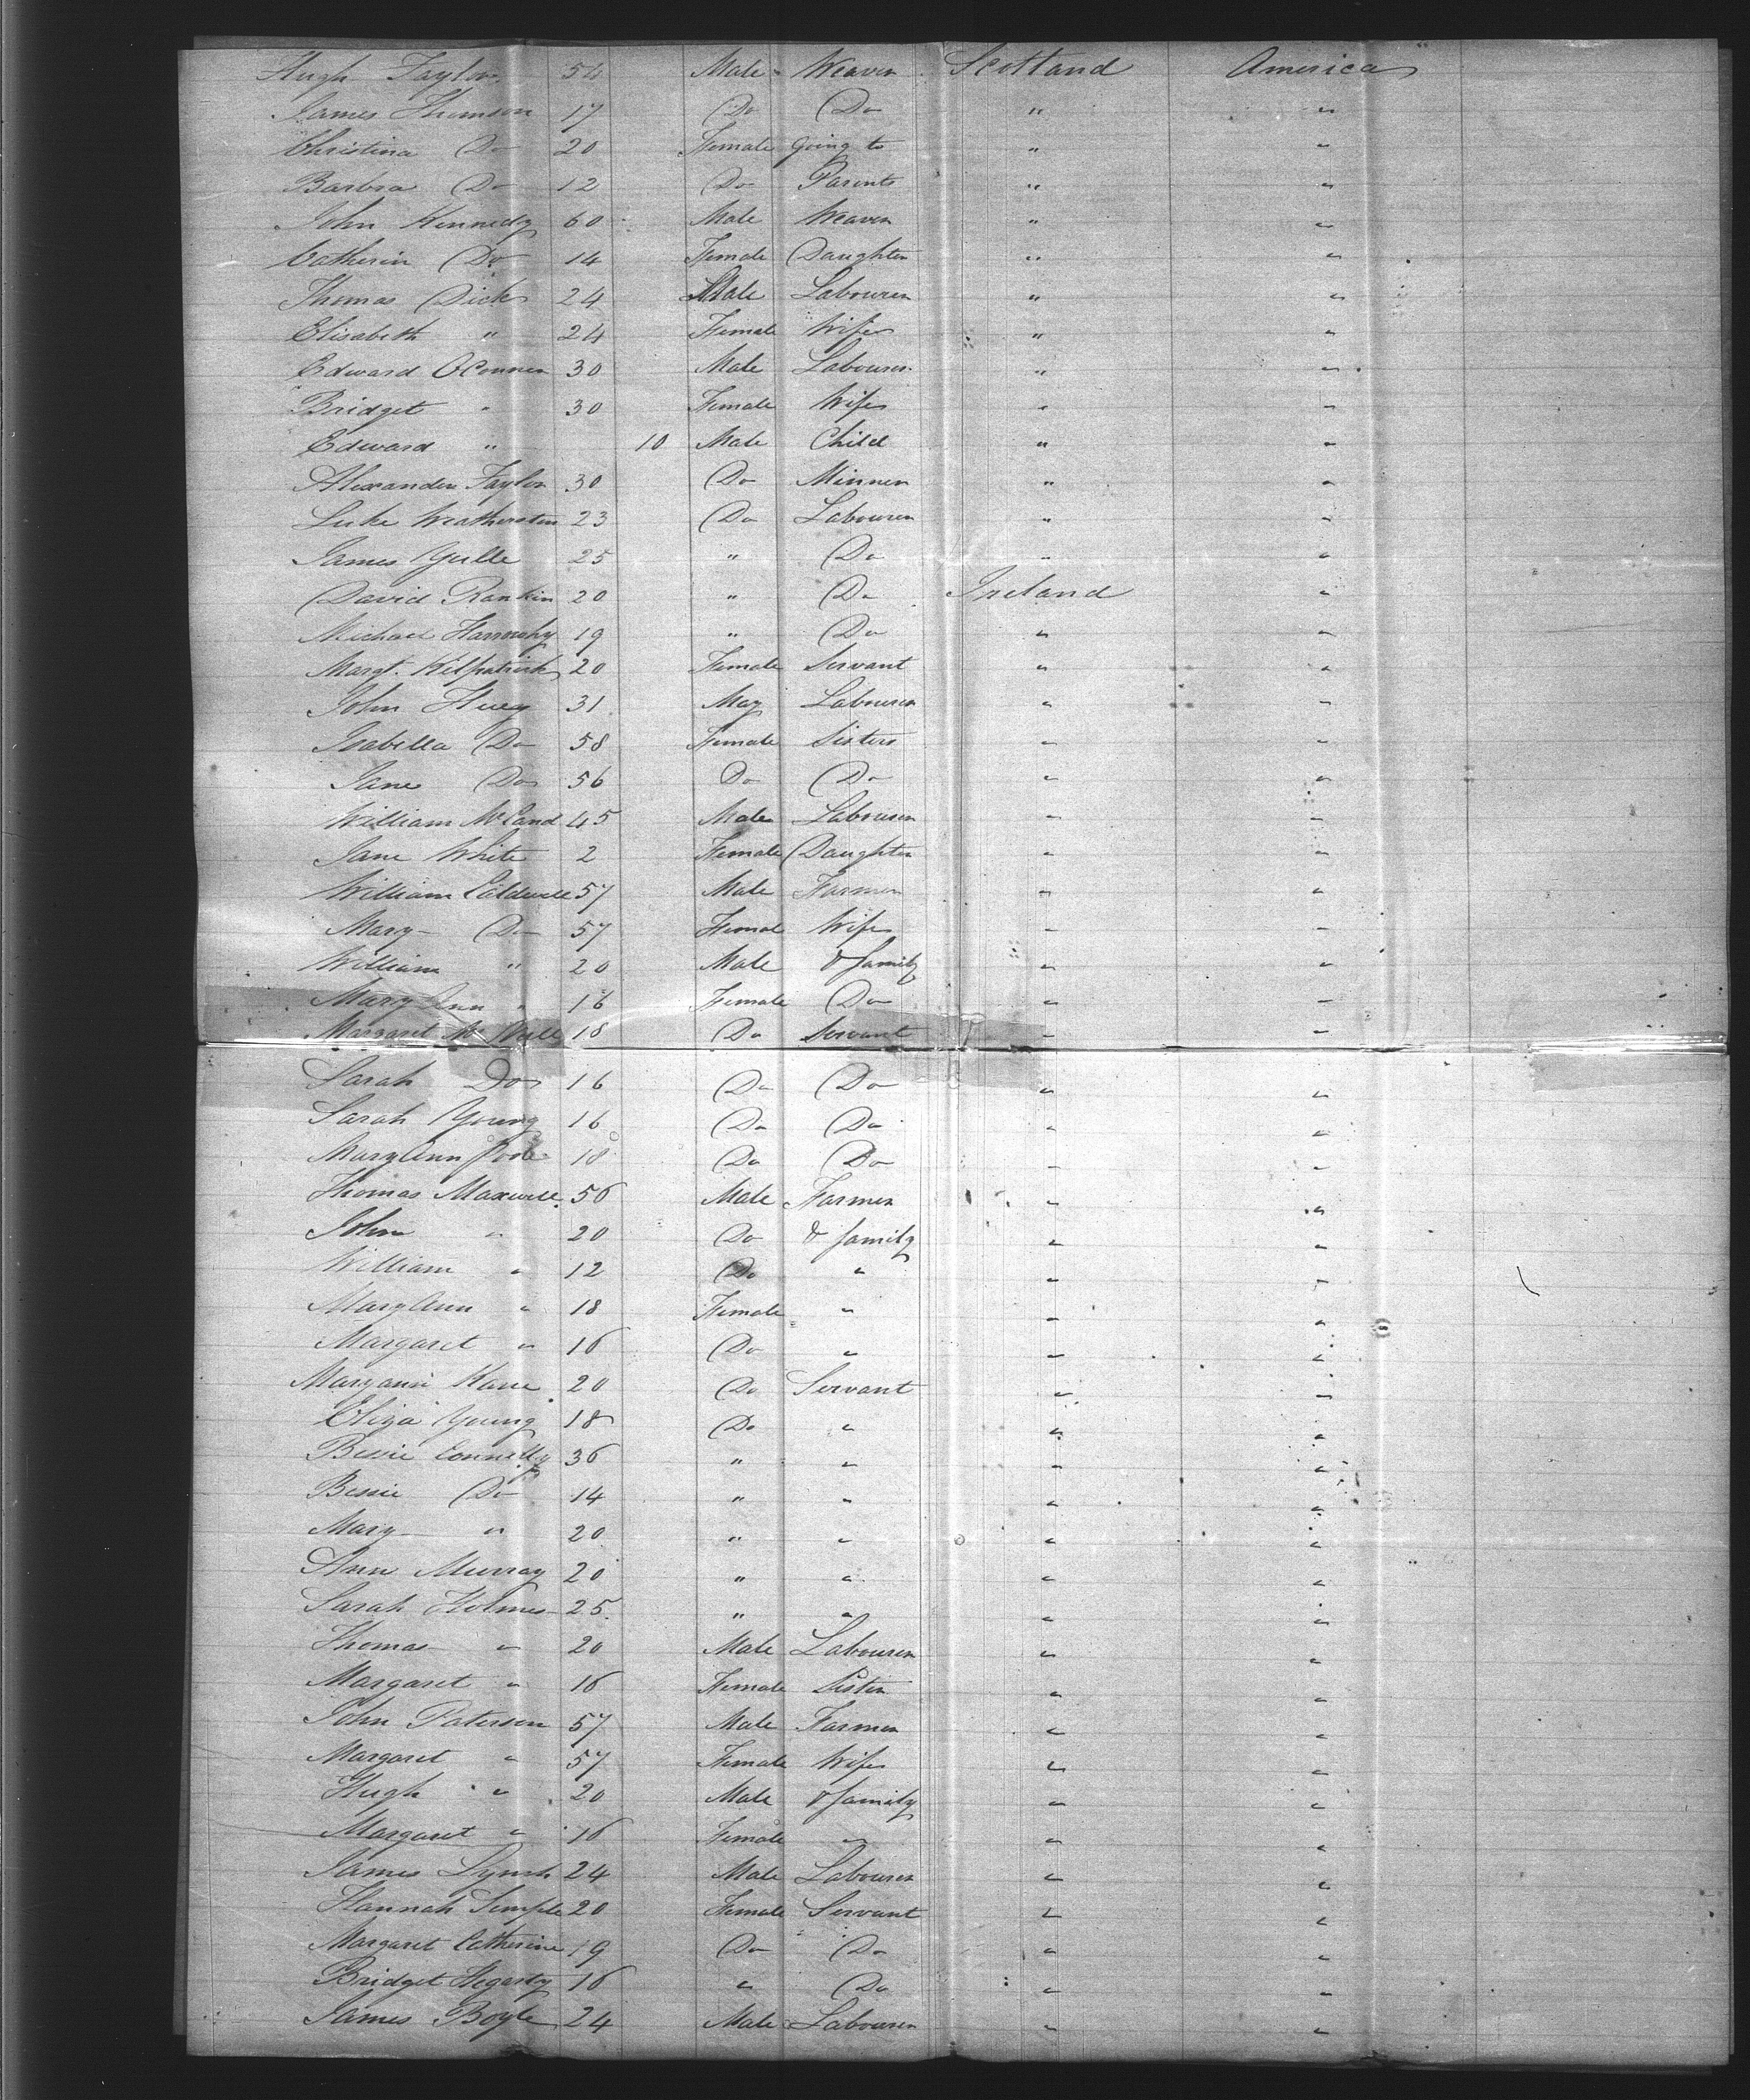 Hugh Taylor 54 Male Weaver Scotland America
James Thomson 17 Do Do " "
Christina Do 20 Female going to " "
Barbra Do 12 Do Parents " "
John Kennedy 60 Male Weaver " "
Catherin Do 14 Female Daughter " "
Thomas Dick 24 Male Labourer " "
Elisabeth " 24 Female Wife " "
Edward OConner 30 Male Labourer " "
Bridget " 30 Female Wife " "
Edward " 10 Male Child " "
Alexander Taylor 30 Do Minner " "
Luke Weatherston 23 Do Labourer " "
James Yulle 25 " Do " "
David Rankin 20 " Do Ireland "
Michael 19 " Do " "
Margt. Kilpatrick 20 Female Servant " "
John Huey 31 May Labourer " "
Isabella Do 58 Female Sisters " "
Jane Do 56 Do Do " "
William McCand 45 Male Labourer " "
Jane White 2 Female Daughter " "
William Caldwell 57 Male Farmer " "
Mary Do 57 Femal Wife " "
William " 20 Male & family " "
Mary Ann " 16 Female Do " "
Margaret Mc 18 Do Servant " "
Sarah Do 16 Do Do " "
Sarah Young 16 Do Do " "
Mary Ann 18 Do Do " "
Thomas Maxwell 56 Male Farmer " "
John " 20 Do & family " "
William " 12 Do " " "
Mary Ann " 18 Female " " "
Margaret " 16 Do " " "
Maryann Kane 20 Do Servant " "
Eliza Young 18 Do " " "
Bessie Connelly 36 " " " "
Bessie Do 14 " " " "
Mary " 20 " " " "
Ann Murray 20 " " " "
Sarah Holmes 25 " " " "
Thomas " 20 Male Labourer " "
Margaret " 16 Female Sister " "
John Paterson 57 Male Farmer " "
Margaret " 57 Female Wife " "
Hugh " 20 Male & family " "
Margaret " 16 Female " " "
James Lynch 24 Male Labourer " "
Hannah Semple 20 Female Servant " "
Margaret Catherine 19 Do Do " "
Bridget Hegarty 16 " Do " "
James Boyle 24 Male Labourer " "